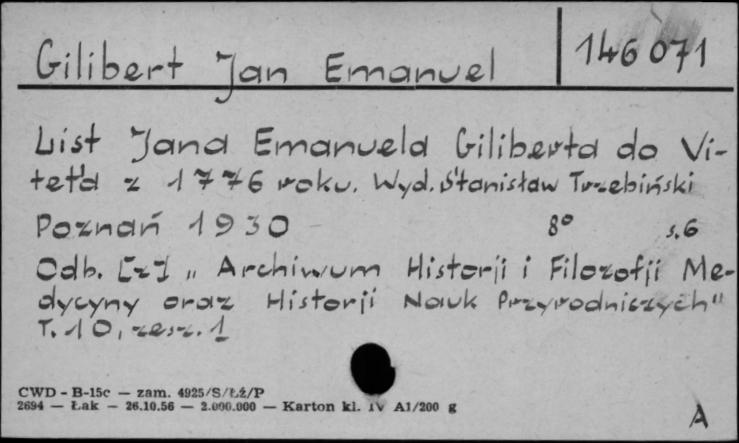 Gilibert Jan Emanuel 146 071
List Jana Emanuela Giliberta do Vi-
tet'a z 1776 roku. Wyd. Stanisław Trzebiński
Poznań 1930 8° s. 6
Odb. [z] „Archiwum Historji i Filozofji Me-
dycyny oraz Historji Nauk Przyrodniczych"
T. 10, zesz. 1
CWD - B-15c — zam. 4925/S/Łź/P
2694 — Łak — 26.10.56 — 2.000.000 — Karton kl. IV A1/200 g
A